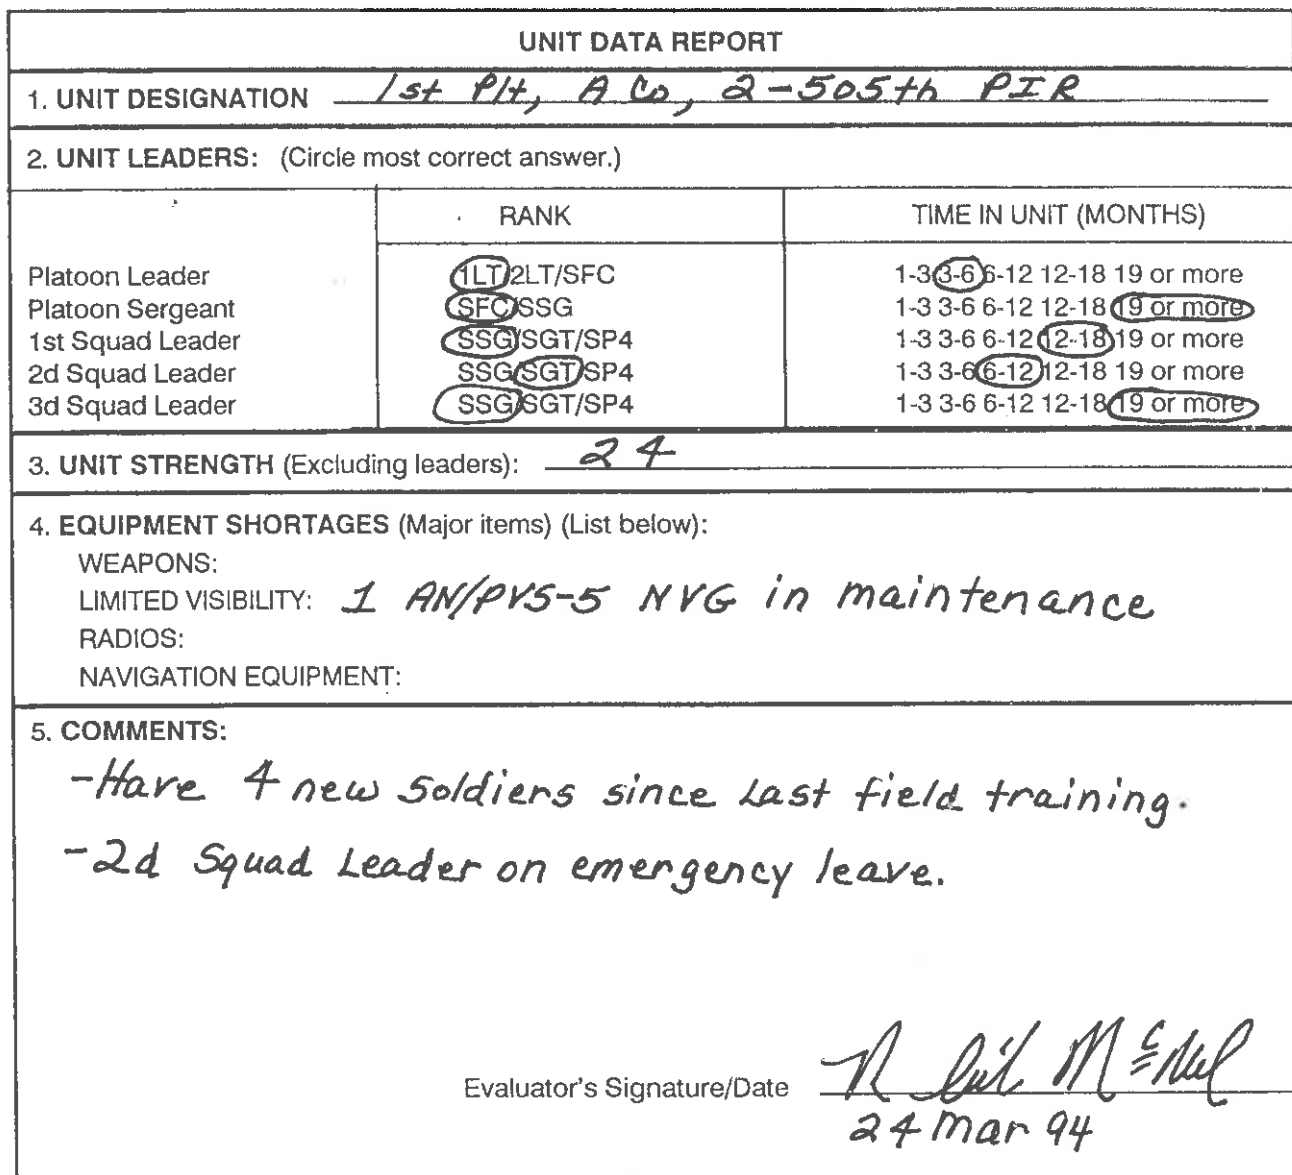 UNIT DATA REPORT
1. UNIT DESIGNATION 1st Plt, A Co, 2-505th PIR
2. UNIT LEADERS: (Circle most correct answer.)
RANK TIME IN UNIT (MONTHS)
Platoon Leader 1LT/2LT/SFC 1-3 3-6 6-12 12-18 19 or more
Platoon Sergeant SFC/SSG 1-3 3-6 6-12 12-18 19 or more
1st Squad Leader SSG/SGT/SP4 1-3 3-6 6-12 12-18 19 or more
2d Squad Leader SSG/SGT/SP4 1-3 3-6 6-12 12-18 19 or more
3d Squad Leader SSG/SGT/SP4 1-3 3-6 6-12 12-18 19 or more
3. UNIT STRENGTH (Excluding leaders): 24
4. EQUIPMENT SHORTAGES (Major items) (List below):
WEAPONS:
LIMITED VISIBILITY: 1 AN/PVS-5 NVG in maintenance
RADIOS:
NAVIGATION EQUIPMENT:
5. COMMENTS:
-Have 4 new Soldiers since Last field training.
-2d Squad Leader on emergency leave.
Evaluator's Signature/Date
24 Mar 94